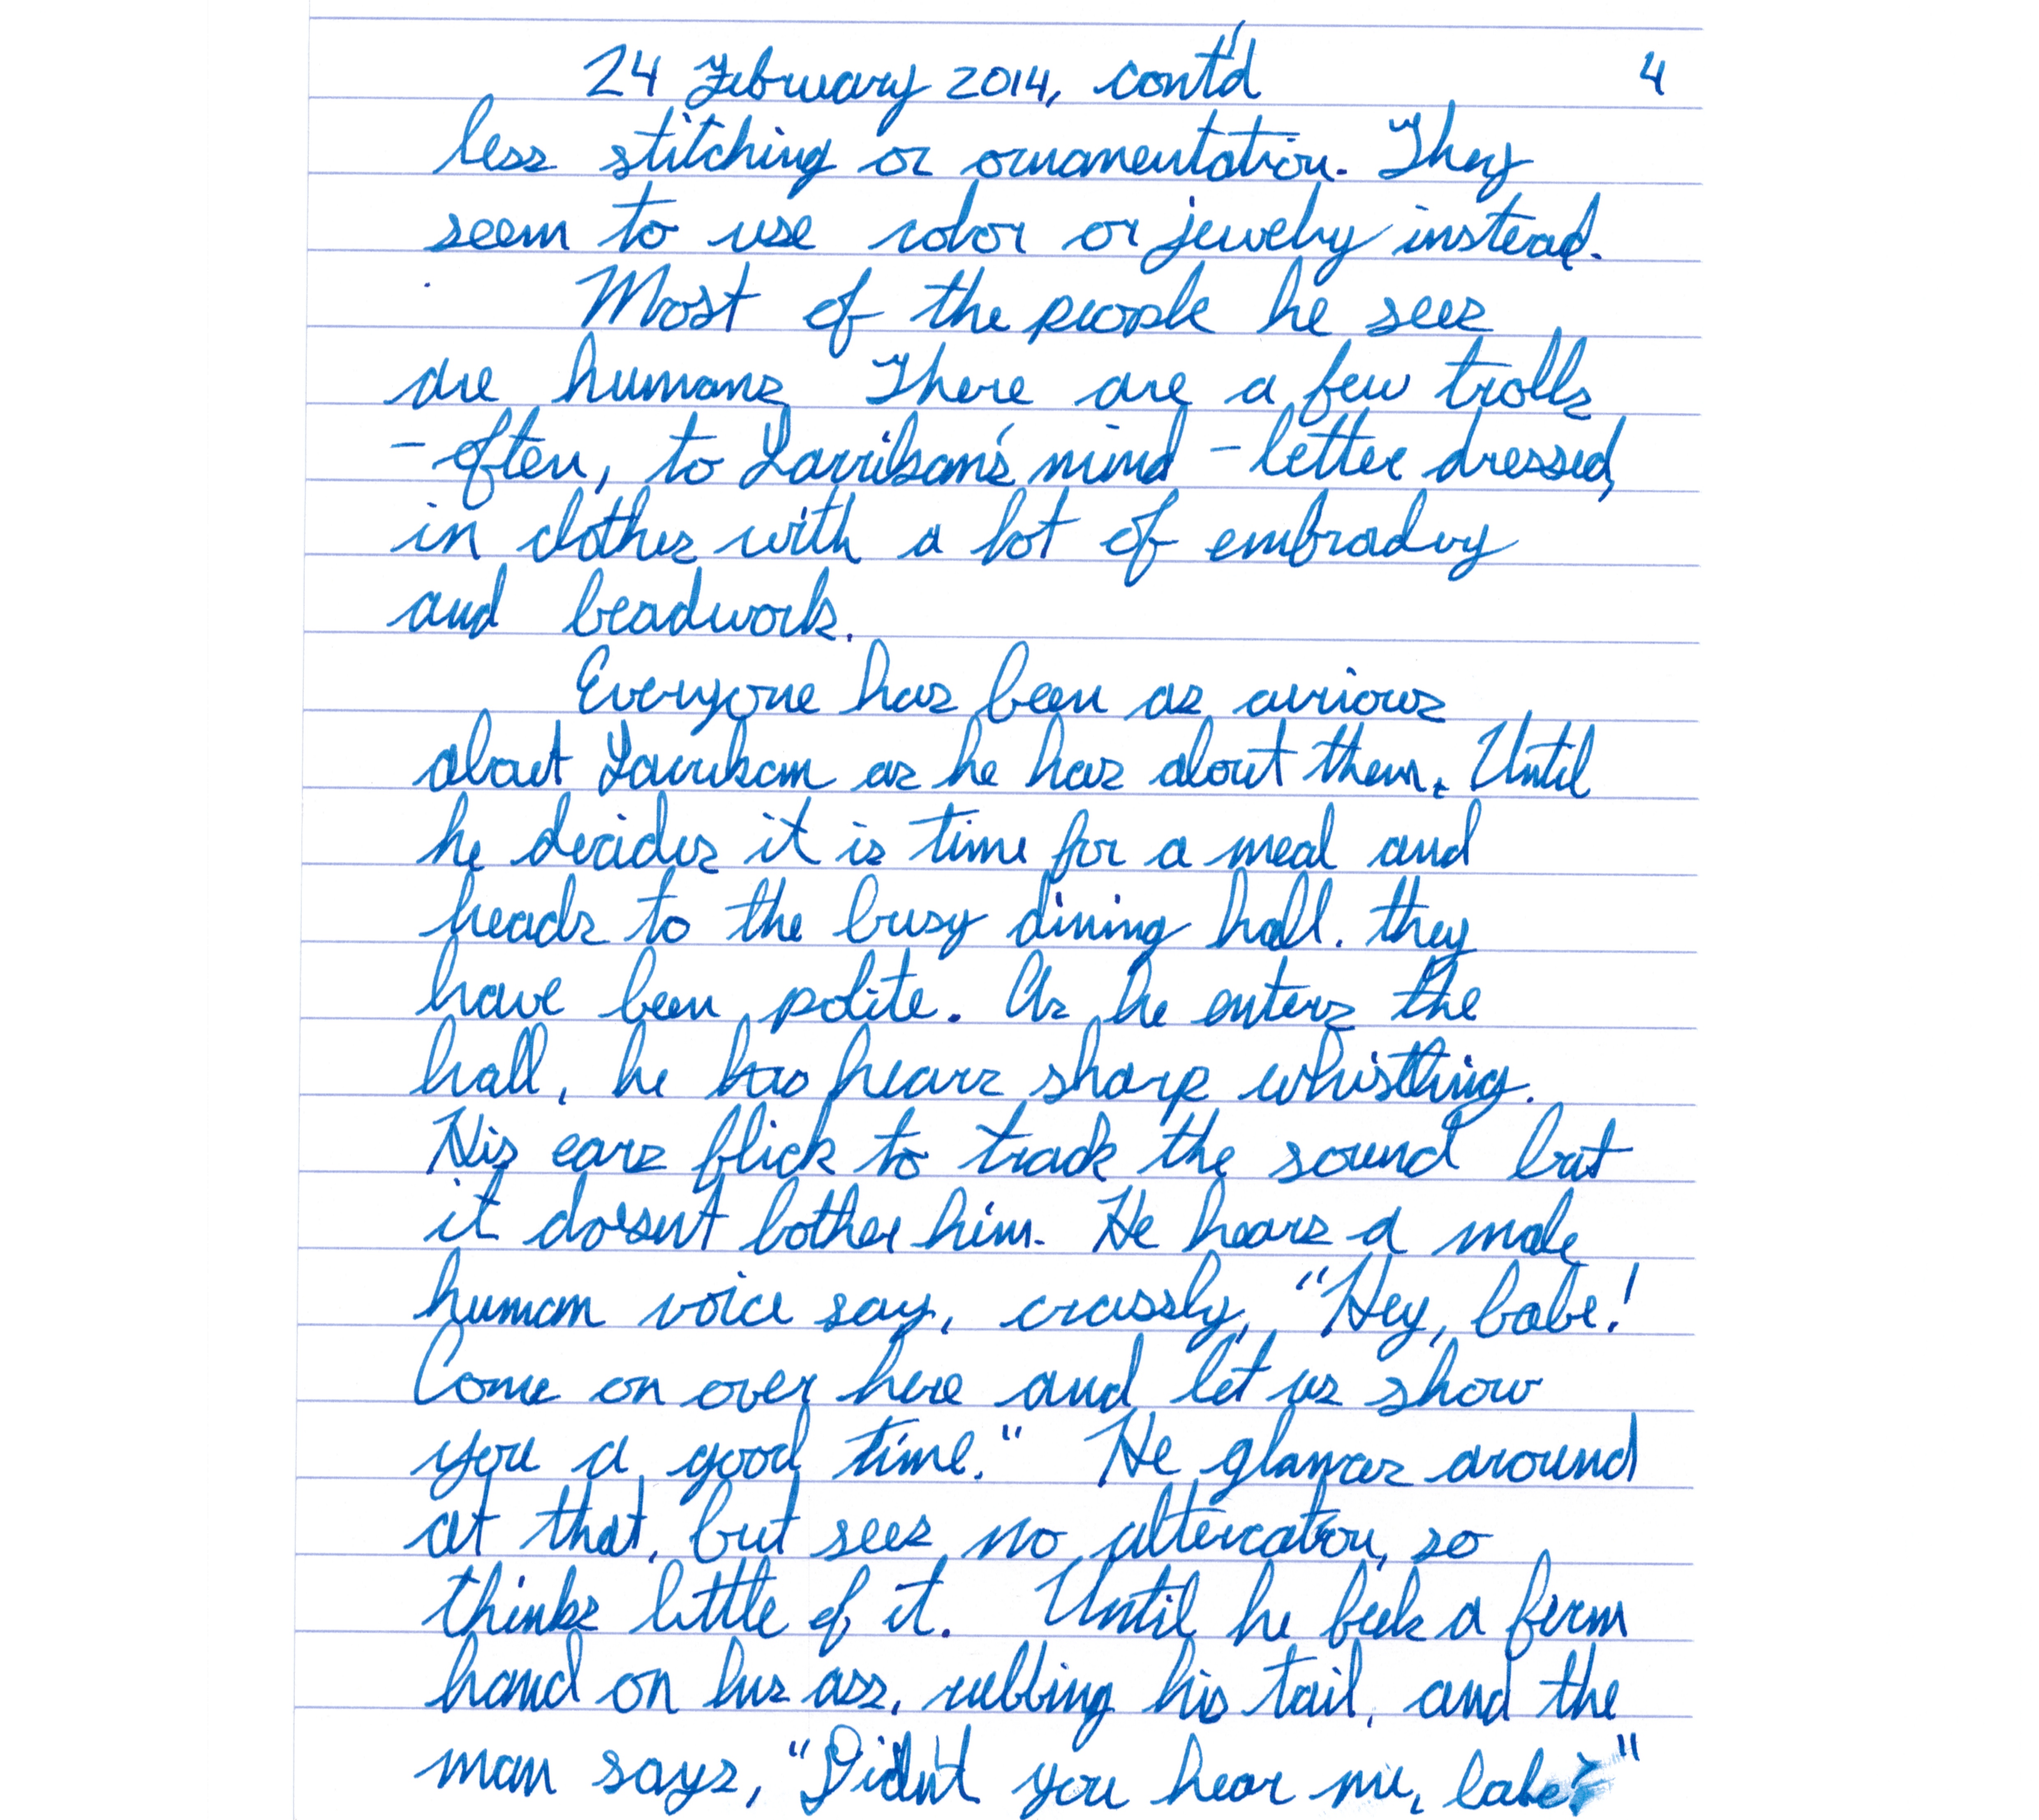 24 February 2014, cont'd 4
less stitching or ornamentation. They
seem to use color or jewelry instead.
Most of the people he sees
are humans. There are a few trolls
- often, to Larriksan's mind - better dressed,
in clothes with a lot of embroidery
and beadwork.
Everyone has been as curious
about Larriksan as he has about them. Until
he decides it is time for a meal and
heads to the busy dining hall. they
have been polite. As he enters the
hall, he has hears sharp whistling.
His ears flick to track the sound but
it doesn't bother him. He hears a male
human voice say, crassly, "Hey, babe!
Come on over here and let us show
you a good time." He glances around
at that, but sees no altercation, so
thinks little of it. Until he feels a firm
hand on his ass, rubbing his tail, and the
man says, "Didn't you hear me, babe?"